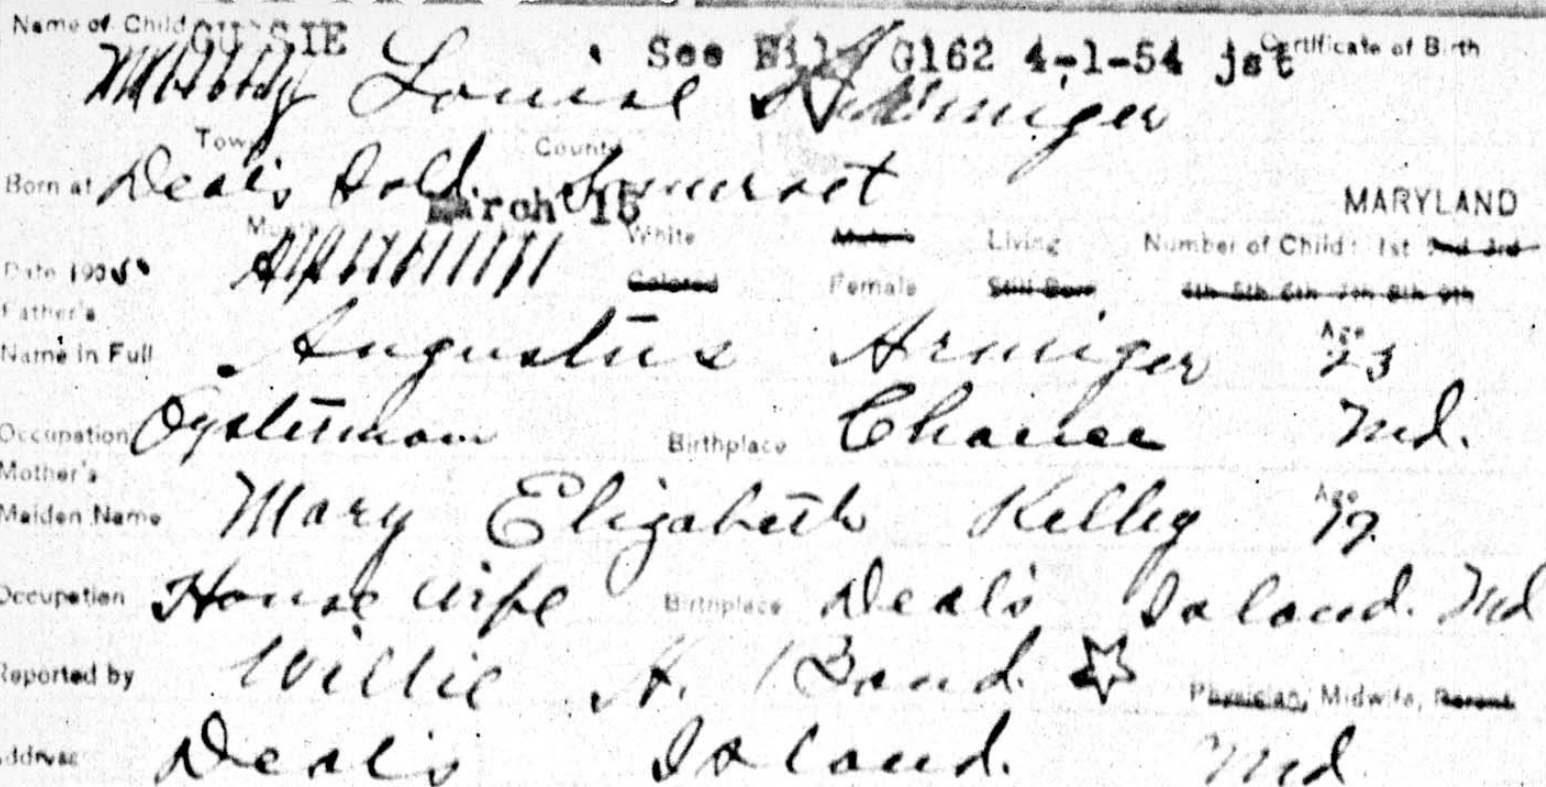 Name of Child GUSSIE . See File G162 4-1-54 jst Certificate of Birth
Louise Armiger
Town County
Born at Deal's Isld. Somerset MARYLAND
March 15
Month White Male Living Number of Child: 1st 2nd 3rd
Date 190
Colored Female Still Born 4th 5th 6th 7th 8th 9th
Father's
Name in Full Augustus Armiger Age 23
Occupation Oysterman Birthplace Chance Md.
Mother's
Maiden Name Mary Elizabeth Kelley Age
Occupation House wife Birthplace Deal's Island. Md
Reported by Willie H. Bond. ☆ Physician, Midwife, Parent
Address Deal's Island. Md.